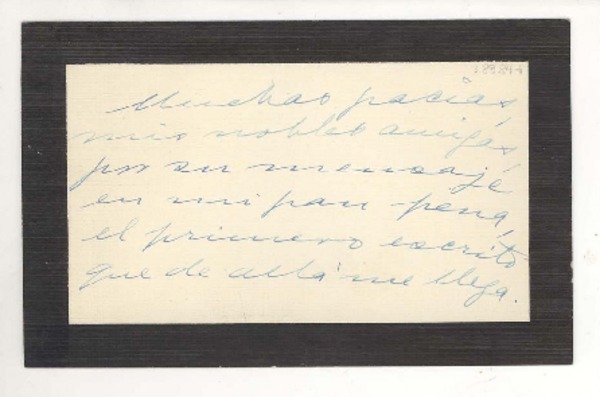 Muchas gracias,
mis nobles amigas,
por su mensaje
en mi gran pena,
el primero escrito
que de allá me llega.